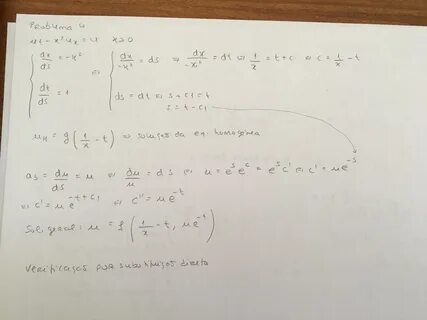 Problema 4
ut - x²ux = u   x>0
{ dx/ds = -x²   ⇔   { dx/-x² = ds ⇒ dx/-x² = dt ⇔ 1/x = t+c ⇔ c = 1/x - t
{ dt/ds = 1   { ds = dt ⇔ s + c1 = t
s = t - c1
uH = g(1/x - t) ⇒ solução da eq. homogénea
as = du/ds = u ⇔ du/u = ds ⇔ u = e^s e^c = e^s c' ⇔ c' = u e^-s
⇔ c' = u e^-t+c1 ⇔ c'' = u e^-t
Sol. geral: u = f(1/x - t, u e^-t)
Verificação por substituição direta